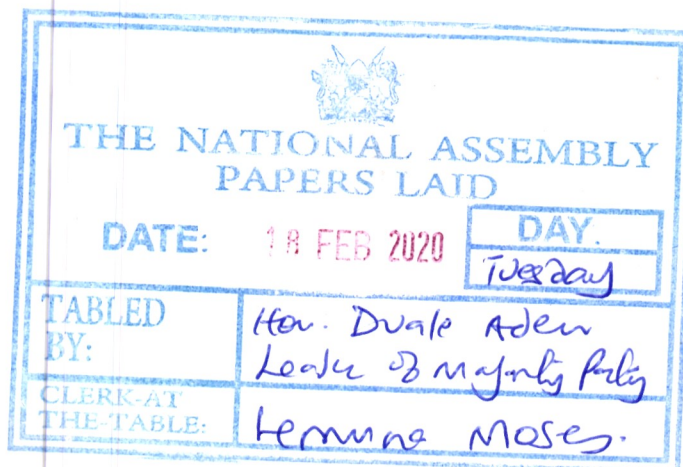 THE NATIONAL ASSEMBLY
PAPERS LAID
DATE: 18 FEB 2020
DAY.
Tuesday
TABLED
BY:
Hon. Duale Aden
Leader of Majority Party
CLERK-AT
THE-TABLE:
Moses.